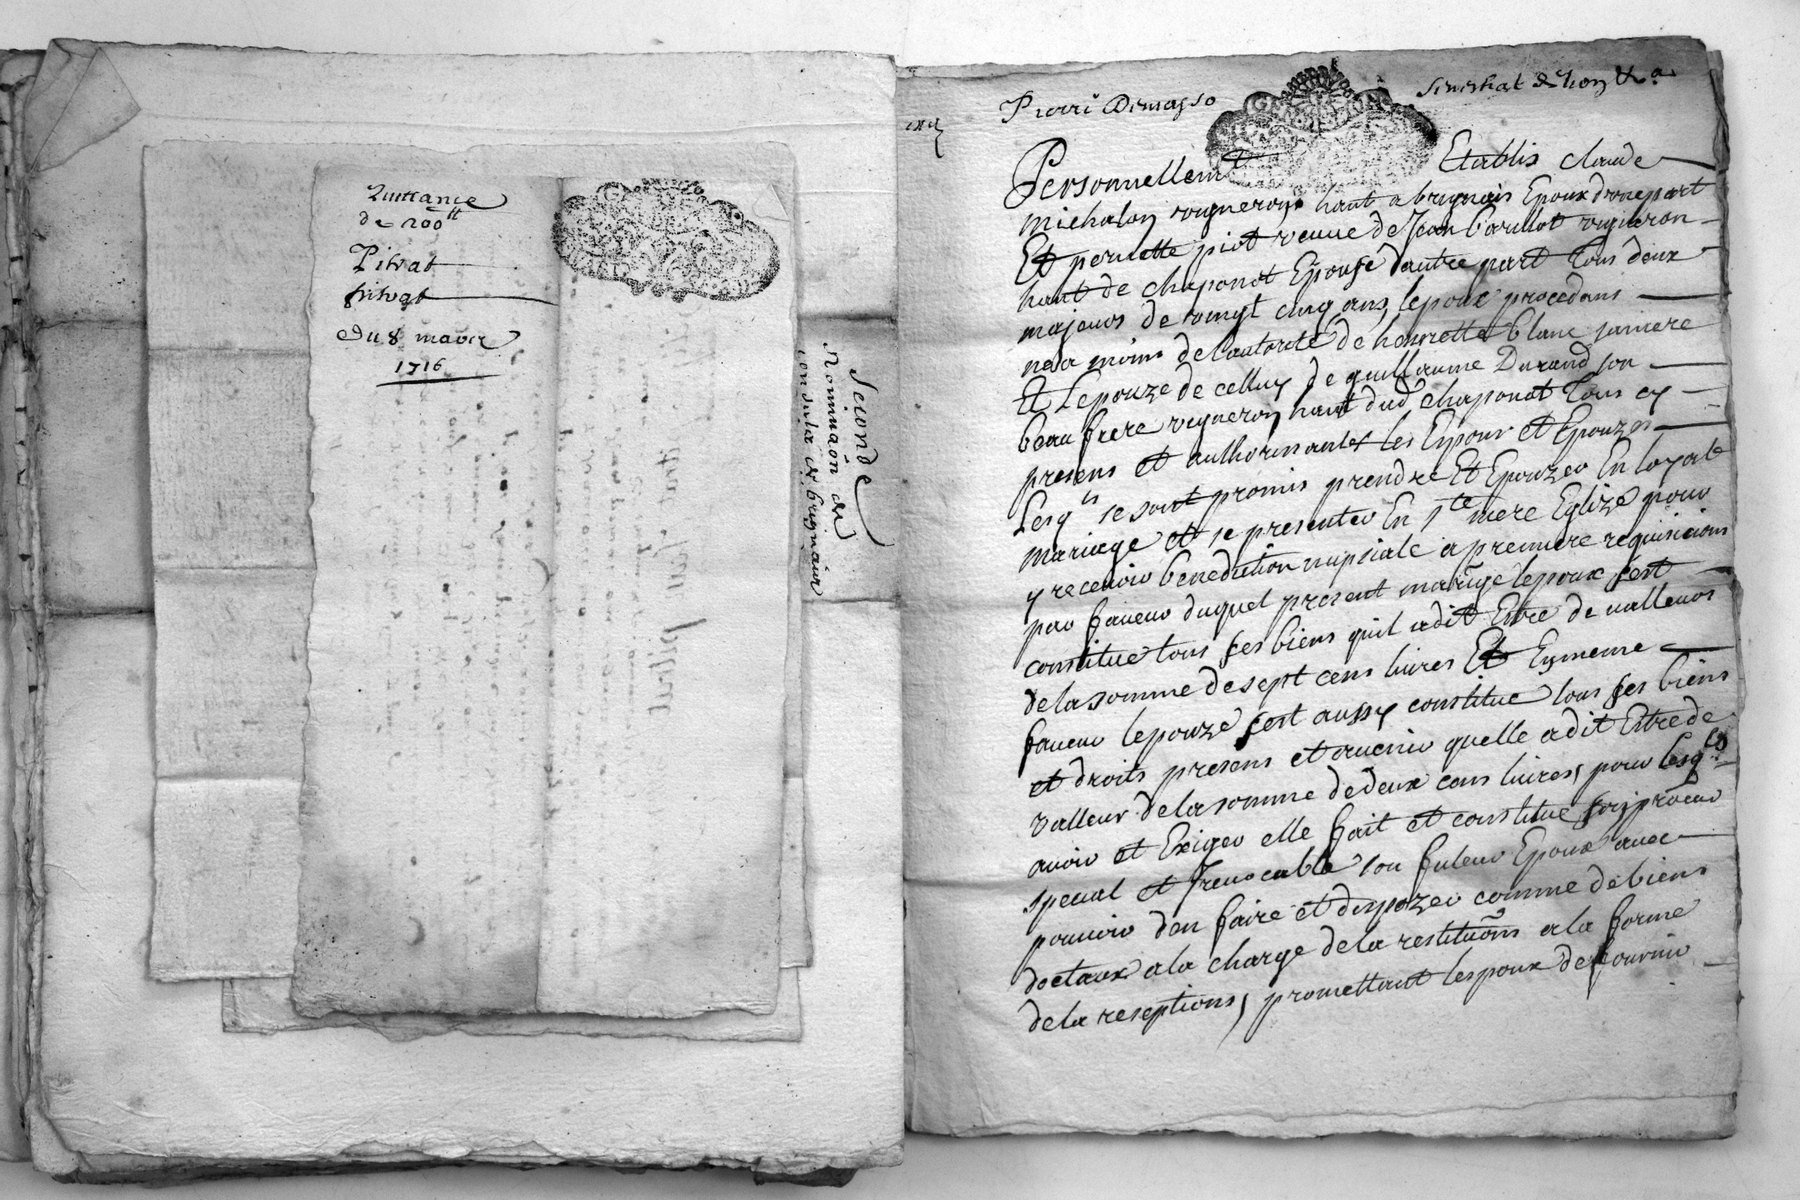 Quittance
de 200ᵗᵗ
Pitrat
pitrat
Du 8 mars
1716
Seconde
Nominaôn des
consulz de brignais
Pierre Demasso Senechal de Lion &ca
Personnellemt Etablis claude
michalon vigneron hant a brignais Epoux d'une part
Et pernette piot veuve de Jean boullot vigneron
hant de chaponot Epouse d'autre part tous deux
majeurs de vingt cinq ans, lepoux procedant
neamoins de l'autorité de henriette blanc sa mere
Et Lepouze de celluy de guillaume Durand son
beau frere vigneron hant dud chaponot tous cy
presens et authorisants les Epoux et Epouze
Lesqls se sont promis prendre Et Epouzer En loyale
mariage et se presenter En Ste mere Eglize pour
y recevoir benediction nupsiale a premiere requisicions
par faveur duquel present mariage lepoux s'est
constitué tous ses biens quil a dit Estre de valleurs
de la somme de sept cens livres Et Eymeme
faveur lepouze s'est aussy constitue tous ses biens
et droits presens et avenir quelle a dit Estre de
valleur de la somme de deux cens livres, pour Lesqls
avoir et Exiger elle fait et constitue son procur
special et Irrevocable son futeur Epoux avec
pouvoir d'en faire et dispozer comme de biens
doctaux a la charge de la restituôns a la forme
de la reseptions, promettant lespoux de fournir